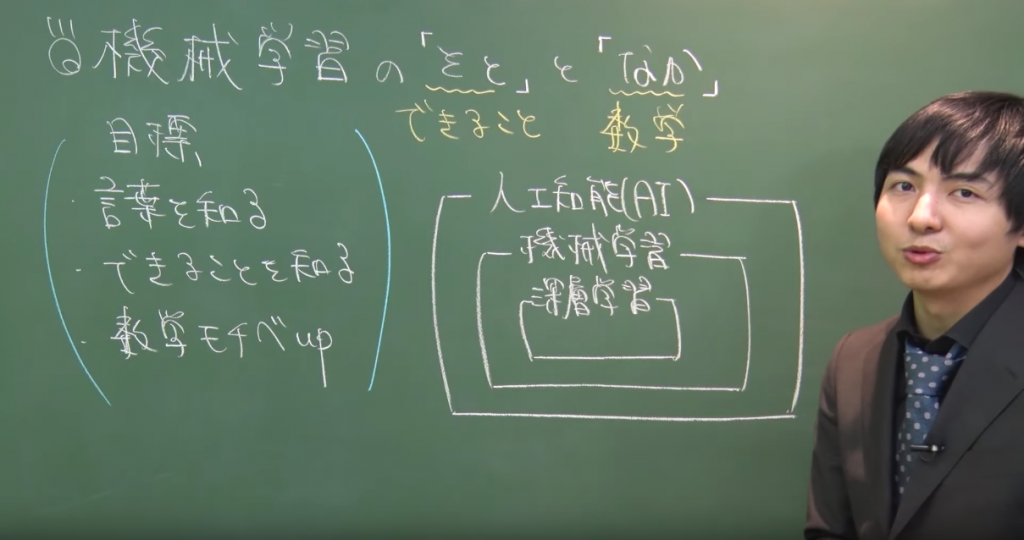 機械学習の「そと」と「なか」
できること 数学
目標
・言葉を知る
・できることを知る
・数学モチベup
人工知能(AI)
機械学習
深層学習